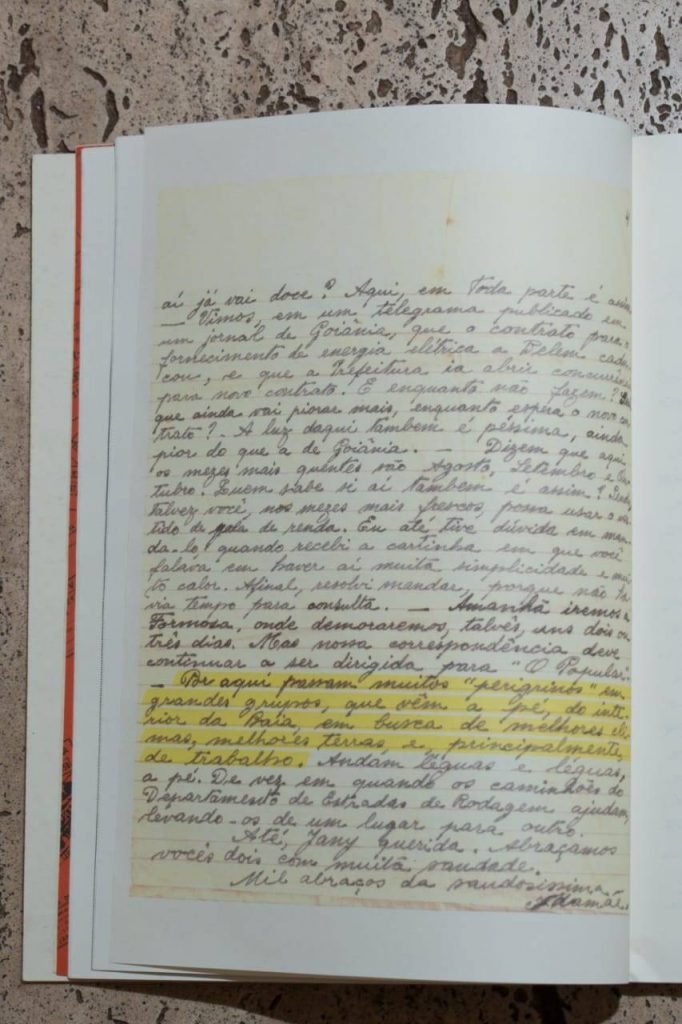 aí já vai doce? Aqui, em toda parte é assim
— Vimos, em um telegrama publicado em
um jornal de Goiânia, que o contrato para o
fornecimento de energia elítrica a Belem cadu
cou, e que a Prefeitura ia abrir concurrencia
para novo contrato. E enquanto não fazem?
que ainda vai piorar mais, enquanto espera o novo con
trato? - A luz daqui tambem é péssima, ainda
pior do que a de Goiânia. — Dizem que aqui
os mezes mais quentes são Agosto, Setembro e Ou
tubro. Quem sabe si aí tambem é assim?
talvez você, nos mezes mais frescos, possa usar o ves
tido de de renda. Eu até tive dúvida em man
da-lo, quando recebi a cartinha em que você
falava em haver aí muita simplicidade e mui
to calor. Afinal, resolvi mandar, porque não ha
via tempo para consulta. — Amanhã iremos a
Formosa, onde demoraremos, talvês, uns dois ou
três dias. Mas nossa correspondência deve
continuar a ser dirigida para "O Popular".
— Por aqui passam muitos "perigrinos" em
grandes grupos, que vêm a pé, do inte-
rior da Baía, em busca de melhores cli
mas, melhores terras, e, principalmente,
de trabalho. Andam léguas e léguas,
a pé. De vez em quando os caminhões do
Departamento de Estradas de Rodagem ajudam,
levando-os de um lugar para outro.
Até, Jany querida. Abraçamos
vocês dois com muita saudade.
Mil abraços da saudosissima
Mamãe.